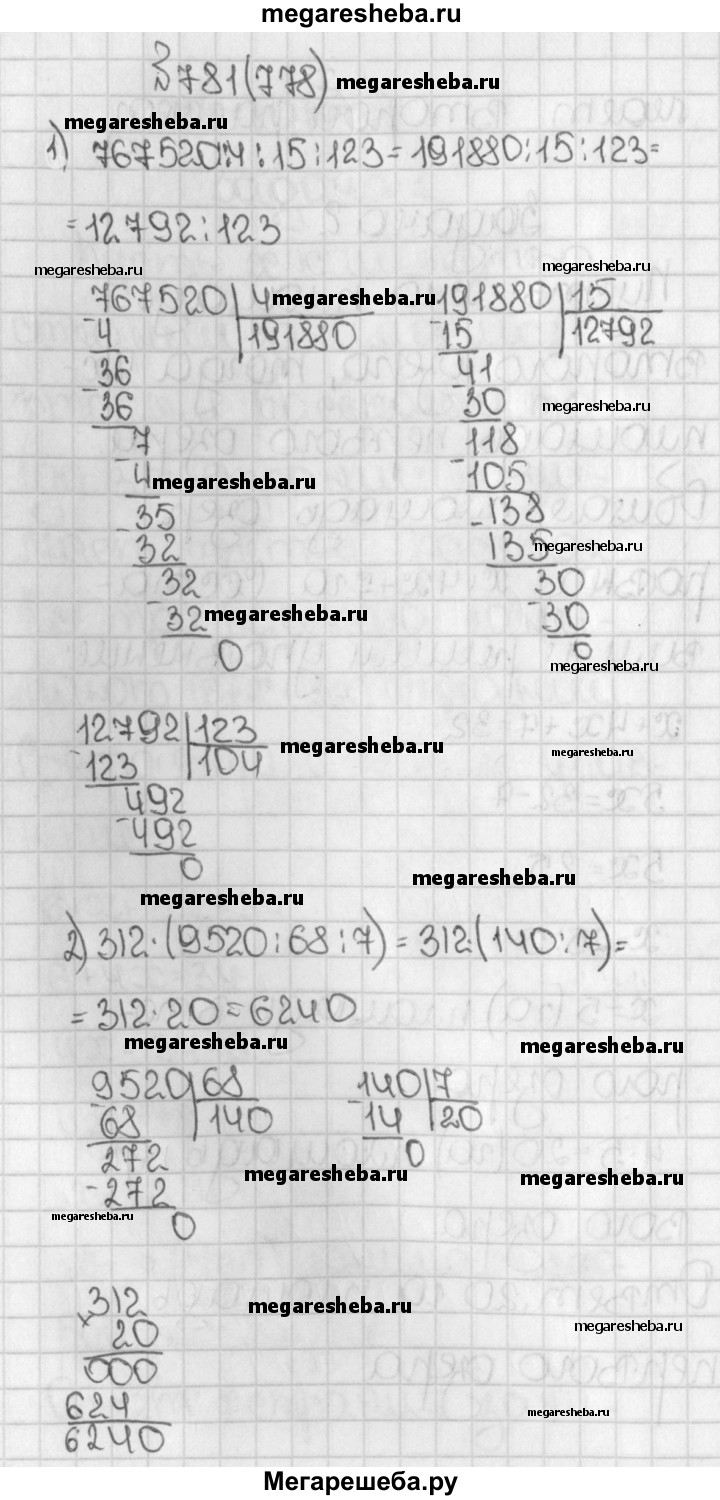 megaresheba.ru
№781(778) megaresheba.ru
megaresheba.ru
1) 767520:4:15:123=191880:15:123=
=12792:123
megaresheba.ru megaresheba.ru
767520 | 4 megaresheba.ru 191880 | 15
-4 | 191880 -15 | 12792
36 41
-36 -30 megaresheba.ru
7 118
-4 megaresheba.ru -105
35 138
-32 -135 megaresheba.ru
32 30
-32 megaresheba.ru -30
0 0
megaresheba.ru
12792 | 123
-123 | 104 megaresheba.ru megaresheba.ru
492
-492
0
megaresheba.ru megaresheba.ru
2) 312·(9520:68:7)=312·(140:7)=
=312·20=6240
megaresheba.ru megaresheba.ru
9520 | 68 140 | 7
-68 | 140 -14 | 20
272 0
-272 megaresheba.ru megaresheba.ru
megaresheba.ru 0
312 megaresheba.ru
×20 megaresheba.ru
000
624
6240 megaresheba.ru
Мегарешеба.ру